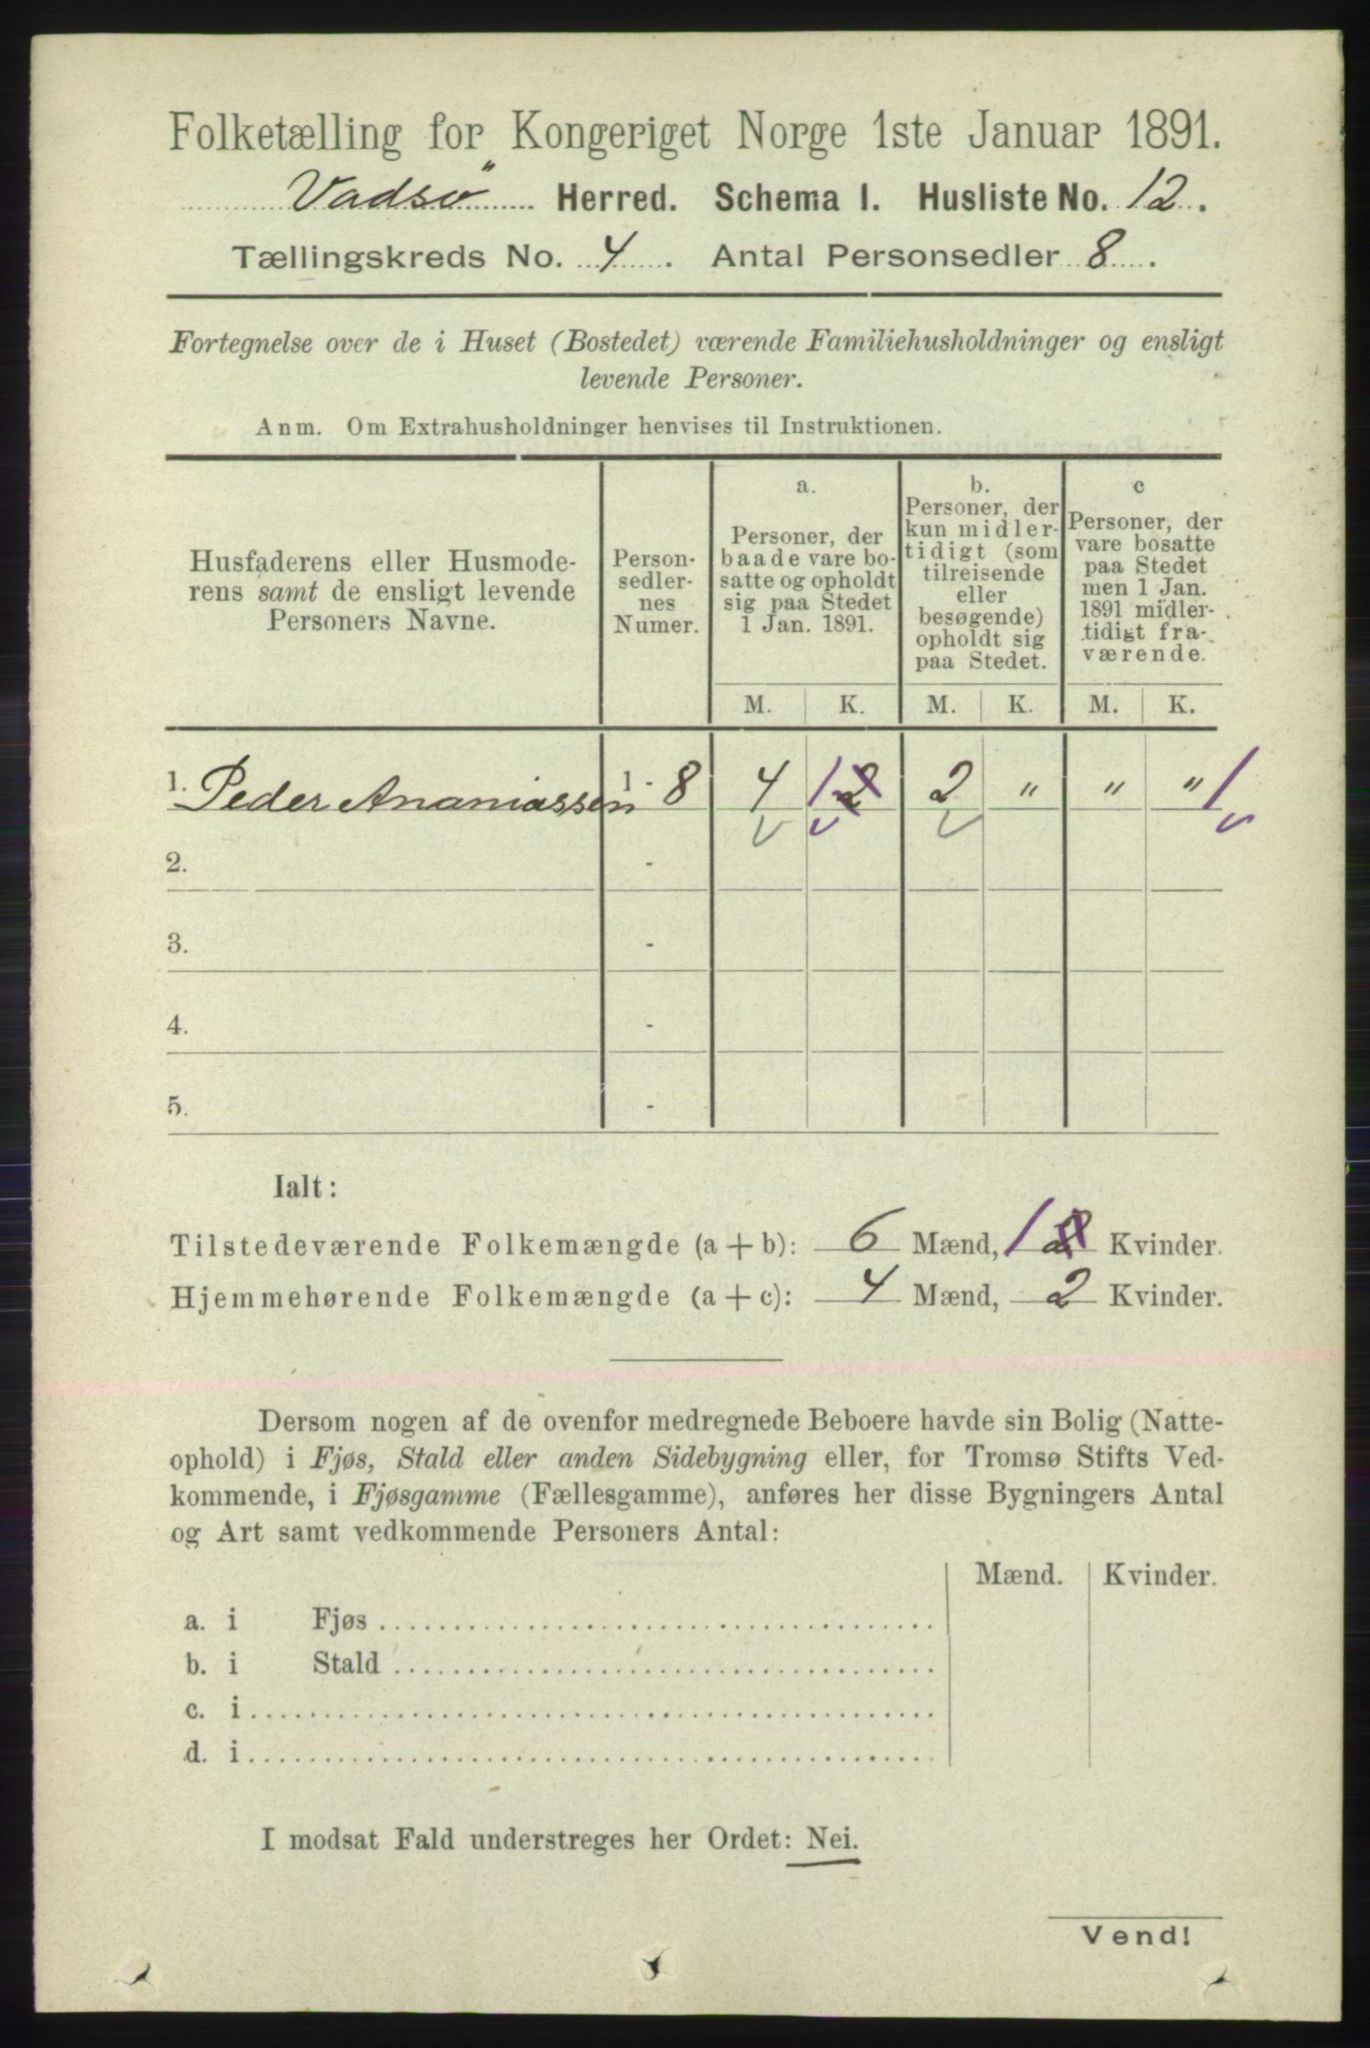 Folketælling for Kongeriget Norge 1ste Januar 1891.
Vadsö Herred. Schema I. Husliste No. 12.
Tællingskreds No. 4. Antal Personsedler 8.
Fortegnelse over de i Huset (Bostedet) værende Familiehusholdninger og ensligt
levende Personer.
Anm. Om Extrahusholdninger henvises til Instruktionen.
Husfaderens eller Husmode-
rens samt de ensligt levende
Personers Navne.
Person-
sedler-
nes
Numer.
a.
Personer, der
baade vare bo-
satte og opholdt
sig paa Stedet
1 Jan. 1891.
b.
Personer, der
kun midler-
tidigt (som
tilreisende
eller
besøgende)
opholdt sig
paa Stedet.
c
Personer, der
vare bosatte
paa Stedet
men 1 Jan.
1891 midler-
tidigt fra-
værende.
M. K. M. K. M. K.
1. Peder Ananiassen 1 - 8 4 1 2 2 " " " 1
2. -
3. -
4. -
5. -
Ialt:
Tilstedeværende Folkemængde (a + b): 6 Mænd, 1 2 Kvinder.
Hjemmehørende Folkemængde (a + c): 4 Mænd, 2 Kvinder.
Dersom nogen af de ovenfor medregnede Beboere havde sin Bolig (Natte-
ophold) i Fjøs, Stald eller anden Sidebygning eller, for Tromsø Stifts Ved-
kommende, i Fjøsgamme (Fællesgamme), anføres her disse Bygningers Antal
og Art samt vedkommende Personers Antal:
Mænd. Kvinder.
a. i Fjøs
b. i Stald
c. i
d. i
I modsat Fald understreges her Ordet: Nei.
Vend!